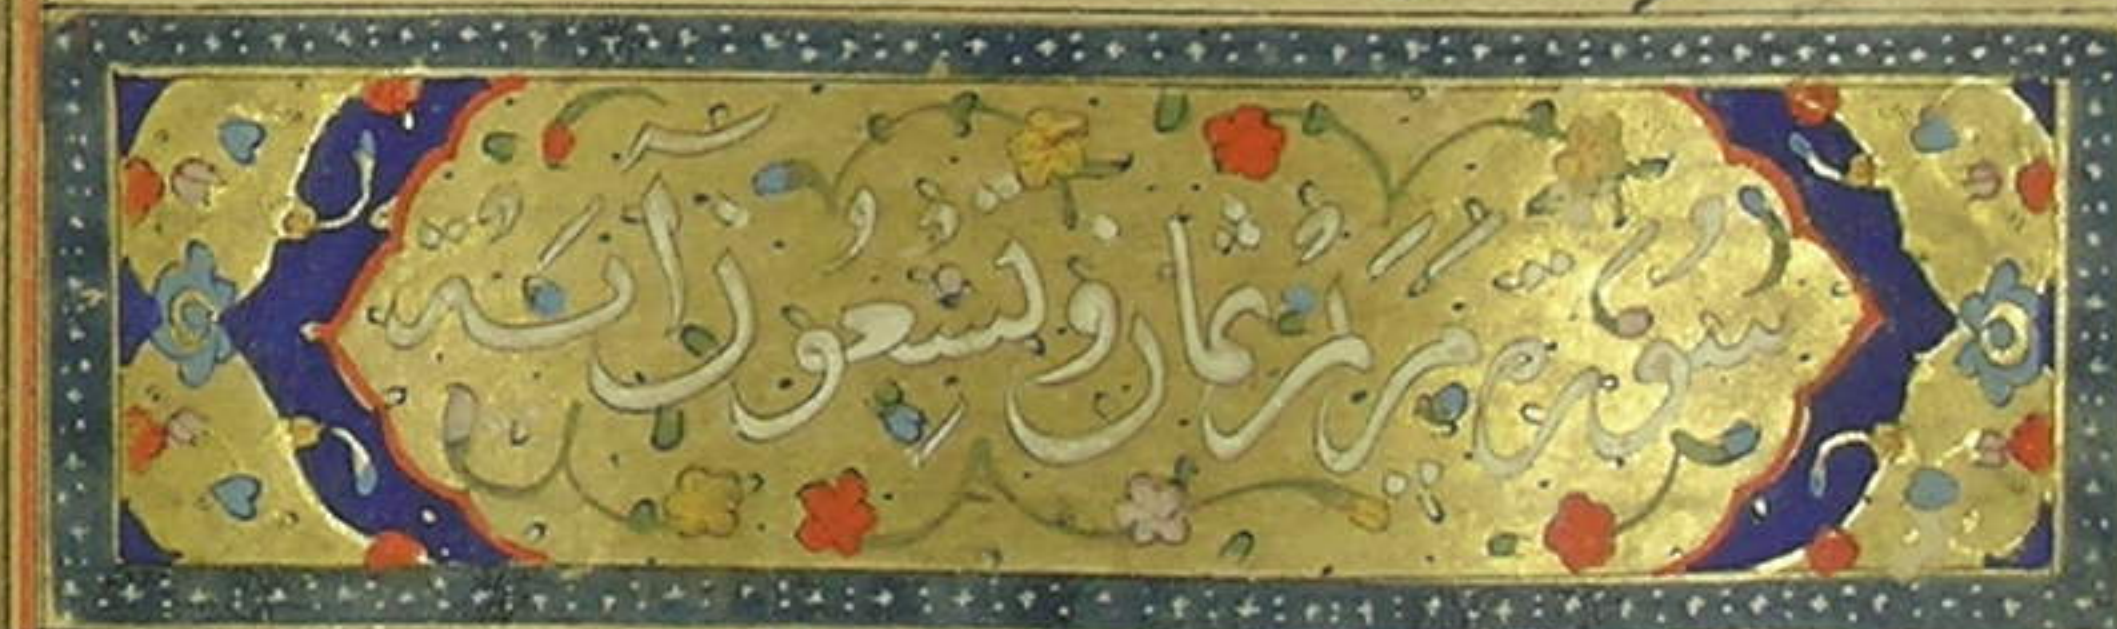 سُورَةُ مَرْيَمَ ثمان وَتِسْعُونَ آيَةً